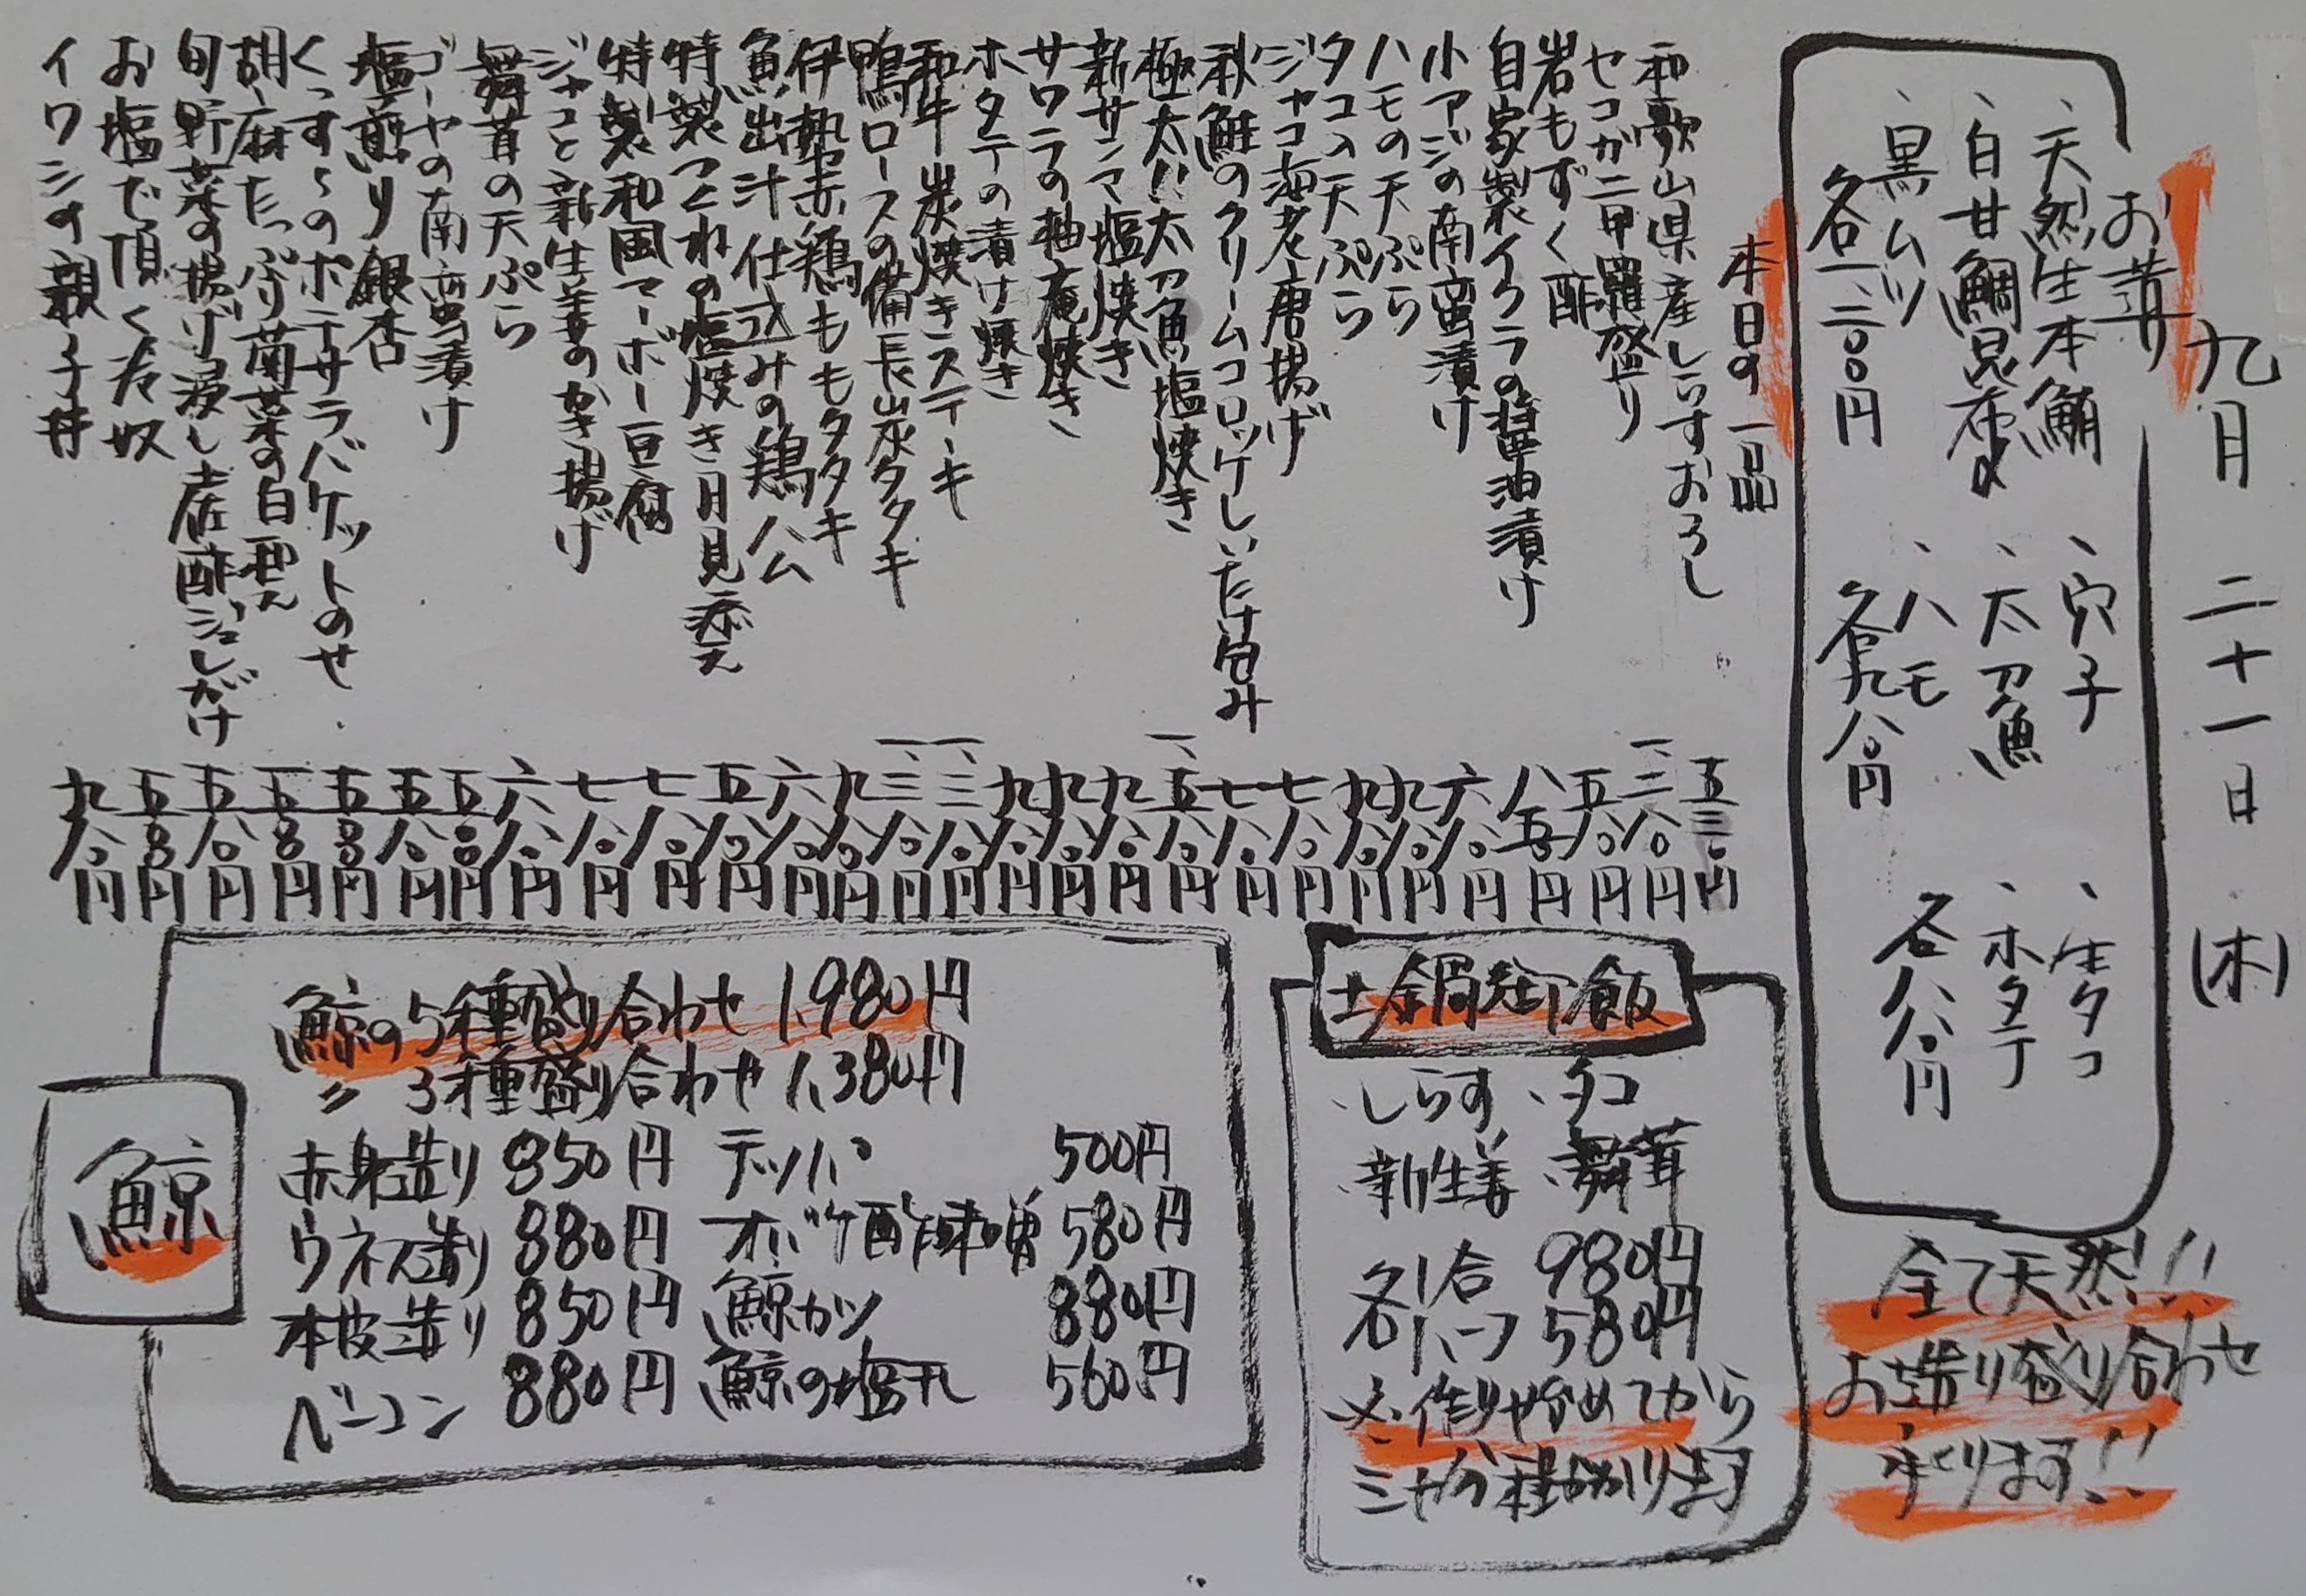 九月 二十一日 (木)
お造り
、天然生本鮪
、白甘鯛昆布〆
、黒ムツ
各一、二〇〇円
、穴子
、太刀魚
、ハモ
各九八〇円
、生タコ
、ホタテ
各八八〇円
全て天然!!
お造り盛り合わせ
承ります!!
本日の一品
和歌山県産しらすおろし 五三〇円
セコガニ甲羅盛り 一、三八〇円
岩もずく酢 五八〇円
自家製イクラの醤油漬け 八五〇円
小アジの南蛮漬け 六八〇円
ハモの天ぷら 九八〇円
タコの天ぷら 九八〇円
ジャコ海老唐揚げ 七八〇円
秋鮭のクリームコロッケしいたけ包み 七八〇円
極太!!太刀魚塩焼き 一、五八〇円
新サンマ塩焼き 九八〇円
サワラの柚庵焼き 九八〇円
ホタテの漬け焼き 九八〇円
和牛炭焼きステーキ 一、三八〇円
鴨ロースの備長炭タタキ 一、三八〇円
伊勢赤鶏ももタタキ 九八〇円
魚出汁仕込みの鶏ハム 六八〇円
特製つくねの塩焼き月見添え 五八〇円
特製和風マーボー豆腐 七八〇円
ジャコと新生姜のかき揚げ 七八〇円
舞茸の天ぷら 六八〇円
ゴーヤの南蛮漬け 五〇〇円
塩煎り銀杏 五八〇円
くっす〜のポテサラバケットのせ 五〇〇円
胡麻たっぷり菊菜の白和え 五〇〇円
旬野菜の揚げ浸し土佐酢ジュレがけ 五八〇円
お塩で頂く冷奴 五〇〇円
イワシの親子丼 九八〇円
土鍋御飯
・しらす ・タコ
・新生姜 ・舞茸
各1合 980円
各ハーフ 580円
※作り始めてから
三十分程かかります
鯨
鯨の5種盛り合わせ 1,980円
〃 3種盛り合わせ 1,380円
赤身造り 850円 テッパ 500円
ウネス造り 880円 オバケ酢味噌 580円
本皮造り 850円 鯨カツ 880円
ベーコン 880円 鯨の塩干し 560円